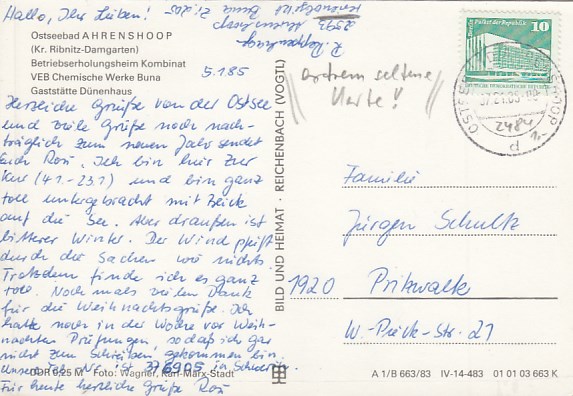 Hallo, Ihr Lieben!
2593
Ostseebad AHRENSHOOP
(Kr. Ribnitz-Damgarten)
Betriebserholungsheim Kombinat
VEB Chemische Werke Buna
Gaststätte Dünenhaus
5.1.85
Herzliche Grüße von der Ostsee
und viele Grüße noch nach-
träglich zum neuen Jahr sendet
Euch Rosi. Ich bin hier zur
Kur (4.1.-23.1) und bin ganz
toll untergebracht mit Blick
auf die See. Aber draußen ist
bitterer Winter. Der Wind pfeift
durch die Sachen wie nichts
Trotzdem finde ich es ganz
toll. Nochmals vielen Dank
für die Weihnachtsgrüße. Ich
hatte noch in der Woche vor Weih-
nachten Prüfungen, so daß ich gar
nicht zum Schreiben gekommen bin.
Unsere Tel. Nr. ist 376905 in Schwerin.
Für heute herzliche Grüße Rosi
DDR 0,25 M Foto: Wagner, Karl-Marx-Stadt
BILD UND HEIMAT · REICHENBACH (VOGTL)
extrem seltene
Karte!
10
2484
d
Familie
Jürgen Schultz
1920 Pritzwalk
W.-Pieck-Str. 21
A 1/B 663/83 IV-14-483 01 01 03 663 K